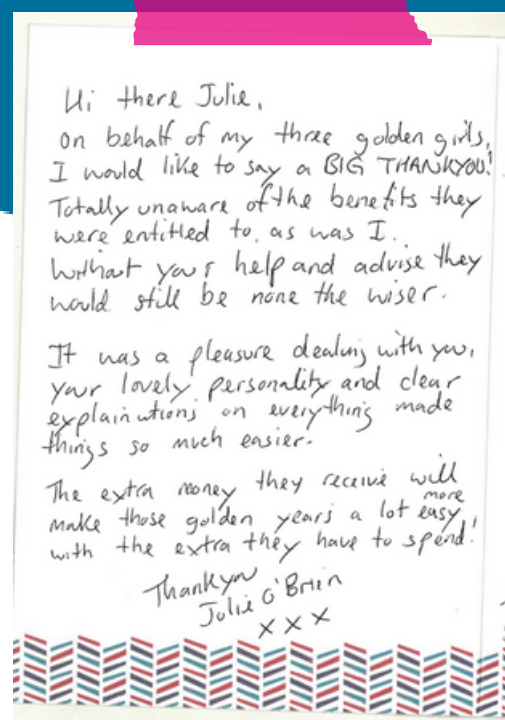 Hi there Julie,
on behalf of my three golden girls,
I would like to say a BIG THANKYOU!
Totally unaware of the benefits they
were entitled to, as was I.
Without your help and advise they
would still be none the wiser.
It was a pleasure dealing with you,
your lovely personality and clear
explainations on everything made
things so much easier.
The extra money they receive will
make those golden years a lot more easy
with the extra they have to spend!
Thankyou
Julie O'Brien
x x x